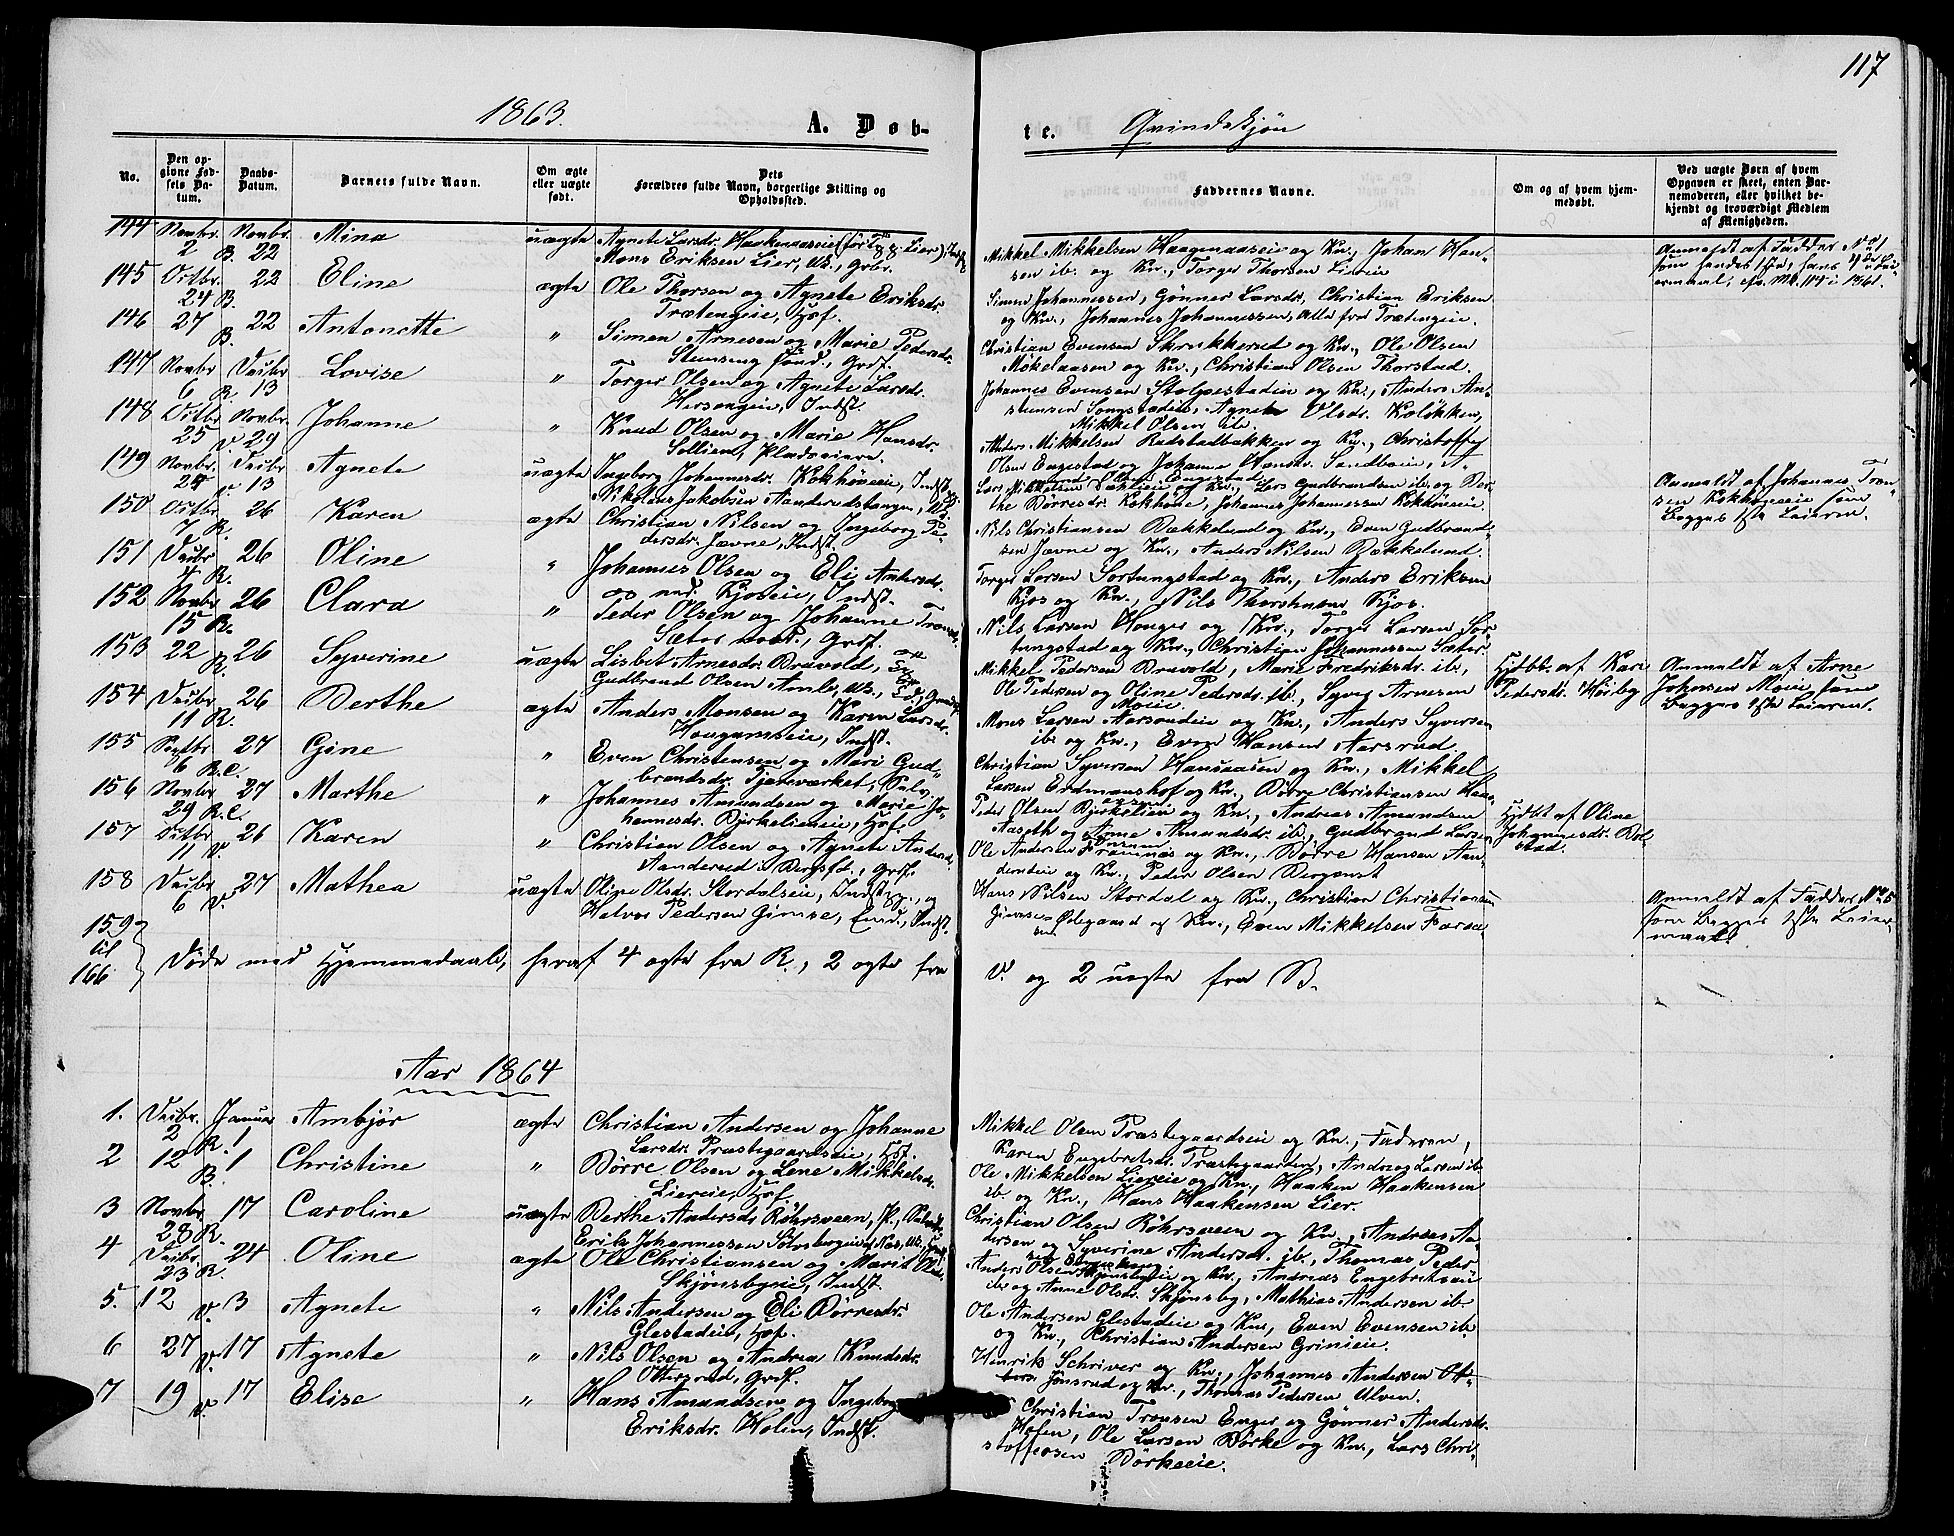 117
1863.
A. Døb-
te.
Qvindekjøn
No.
Den op-
givne Fød-
sels Da-
tum.
Daabs-
Datum.
Barnets fulde Navn.
Om ægte
eller uægte
født.
Dets
Forældres fulde Navn, borgerlige Stilling og
Opholdssted.
Faddernes Navne.
Om og af hvem hjem-
medøbt.
Ved uægte Børn af hvem
Opgaven er skeet, enten Bar-
nemoderen, eller hvilket be-
kjendt og troværdigt Medlem
af Menigheden.
144 Novbr. 2 B. Novbr. 22 Mina uægte Agnete Larsdr. Haakenaaseie
Mons Eriksen Lier, Uk., Grbr.
Mikkel Mikkelsen Haagenaaseie og Kv., Johan Han-
sen ib. og Kv., Torger Thorsen Liereie
Anmeldt af Fadder No 1
145 Octbr. 24 B. 22 Eline ægte Ole Thorsen og Agnete Eriksdr.
Trætengeie, Hsf.
Simen Johannessen, Gønner Larsdr., Christian Eriksen
og Kv., Johannes Johannessen, Alle fra Trætengeie.
146 27 B. 22 Antonette " Simen Arnesen og Marie Pedersdr.
Stenseng, Grdf.
Christian Evensen Skrukkerud og Kv., Ole Olsen
Mökelaasen og Kv., Christian Olsen Thorstad.
147 Novbr 6 R. Decbr 13 Lovise " Torger Olsen og Agnete Larsdr.
Hersengeie, Indst.
Johannes Evensen Stolpestadeie og Kv., Anders An-
stensen Songstadeie, Agnete Olsdr. Kolökken,
Mikkel Olsen ib.
148 Octbr. 25 V. Novbr. 29 Johanne " Knud Olsen og Marie Hansdr.
Sollien, Pladseiere.
Anders Mikkelsen Rudstadbakken og Kv., Christoffer
Olsen Engestad og Johanne Hansdr. Sandboeie,
149 Novbr. 24 V. Decbr 13 Agnete uægte Ingeborg Johannesdr. Kokhöneie, Indst.
Nikolai Jakobsen Aanderudstangen, Uk.
Lars Mikkelsen Dæhlieie og Kv., Lars Gudbrandsen ib. og Ber-
the Börresdr. Kokhöne, Johannes Johannessen Kokhöneie.
Anmeldt af Johannes Tron-
sen Kokhøneie som
Begges 1ste Leierm.
150 Octbr 7 R. 26 Karen ægte Christian Nilsen og Ingeborg Pe-
dersdr. Jævne, Indst.
Nils Christiansen Bækkelund og Kv., Even Gudbrand-
sen Jevne og Kv., Anders Nilsen Bækkelund.
151 Decbr 4 R. 26 Oline " Johannes Olsen og Eli Andersdr.
Kjoseie, Indst.
Torger Larsen Sortungstad og Kv., Anders Eriksen
Kjos og Kv., Nils Thorstensen Kjos.
152 Novbr 15 R. 26 Clara " Peder Olsen og Johanne Tronsdr.
Sæter, Grdf.
Nils Larsen Houger og Kv., Torger Larsen Sor-
tungstad og Kv., Christian Johannessen Sæter
153 22 R. 26 Syverine uægte Lisbet Arnesdr. Bruvold,
Gudbrand Olsen Amb, Uk.,
Mikkel Pedersen Bruvold, Marie Fredriksdr. ib.,
Ole Pedersen og Oline Pedersdr. ib., Syver Arnesen
Moeie.
Hjdbt. af Kari
Pedersdr. Kiölby
Anmeldt af Arne
Johnsen Moeie som
Begges 1ste Leierm.
154 Decbr 11 R. 26 Berthe ægte Anders Monsen og Karen Larsdr.
Hougumseie, Indst.
Mons Larsen Aarsrudeie og Kv., Anders Syversen
ib. og Kv., Even Hansen Aarsrud.
155 Septbr 6 B.C. 27 Gine " Even Christensen og Mari Gud-
brandsdr. Tjæreværket, Selv.
Christian Syversen Hansaasen og Kv., Mikkel
Larsen Erdmanshof og Kv., Börre Christiansen Haa-
156 Novbr 29 B.C. 27 Marthe " Johannes Amundsen og Marie Jo-
hannesdr. Bjerkelieneie, Hsf.
Peder Olsen Bjerkelieie og Kv., Andreas Amundsen
Aaseth og Anne Amundsdr. ib., Gudbrand Larsen
Hjdbt af Oline
Johannesdr. Bol-
stad.
157 Octbr 11 V. 26 Karen " Christian Olsen og Agnete Andersdr.
Aanderud i Bergsfd., Grdf.
Ole Andersen Framnæs og Kv., Börre Hansen Aan-
derudeie og Kv., Peder Olsen Bergsnest
158 Decbr 6 V. 27 Mathea uægte Oline Olsdr. Stordalseie, Indst., og
Halvor Pedersen Gimse, Enk., Indst.
Hans Nilsen Stordal og Kv., Christian Christiansen
Gimse-Ødegaard og Kv., Even Mikkelsen Foraa-
sen
Anmeldt af Fadder No 5
som Begges 1ste Leier-
maal.
159
til
166
Døde med Hjemmedaab, heraf 4 ægte fra R., 2 ægte fra
V. og 2 uægte fra B.
Aar 1864
1. Decbr. 2 R. Januar 1 Ambjør ægte Christian Andersen og Johanne
Larsdr. Præstegaardseie, Hsf.
Mikkel Olsen Præstegaardseie og Kv., Faderen,
Karen Engebretsdr. Præstegaarden, Andreas Larsen ib.
2 12 B. 1 Christine " Börre Olsen og Lene Mikkelsdr.
Liereie, Hsf.
Ole Mikkelsen Liereie og Kv., Haaken Haakensen
ib. og Kv., Hans Haakensen Lier.
3 Novbr 28 R. 17 Caroline uægte Berthe Andersdr. Röhrsveen, P.,
Erik Johannessen
Christian Olsen Röhrsveen og Kv., Andreas An-
dersen og Syverine Andersdr. ib., Thomas Peder-
sen
4 Decbr. 23 R. 24 Oline ægte Ole Christiansen og Marit Olsdr.
Skjønsbyeie, Indst.
Anders Olsen Skjønsbyeie og Kv., Andreas Engebretsen
ib. og Anne Olsdr. Skjönsby, Mathias Andersen ib.
5. 12 V. 3 Agnete " Nils Andersen og Eli Börresdr.
Glestadeie, Hsf.
Ole Andersen Glestadeie og Kv., Even Evensen ib.
og Kv., Christian Andersen Grinieie.
6 27 V. 17 Agnete " Nils Olsen og Andrea Knudsdr.
Ottersrud, Grdf.
Henrik Schriver og Kv., Johannes Andersen Ot-
Jönsrud og Kv., Thomas Pedersen Ulven.
7 19 V. 17 Elise " Hans Amundsen og Ingeborg
Eriksdr. Holen, Indst.
Christian Tronsen Enger og Gønner Andersdr.
Holen, Ole Larsen Börke og Kv., Lars Chri-
stoffersen Börkeeie.